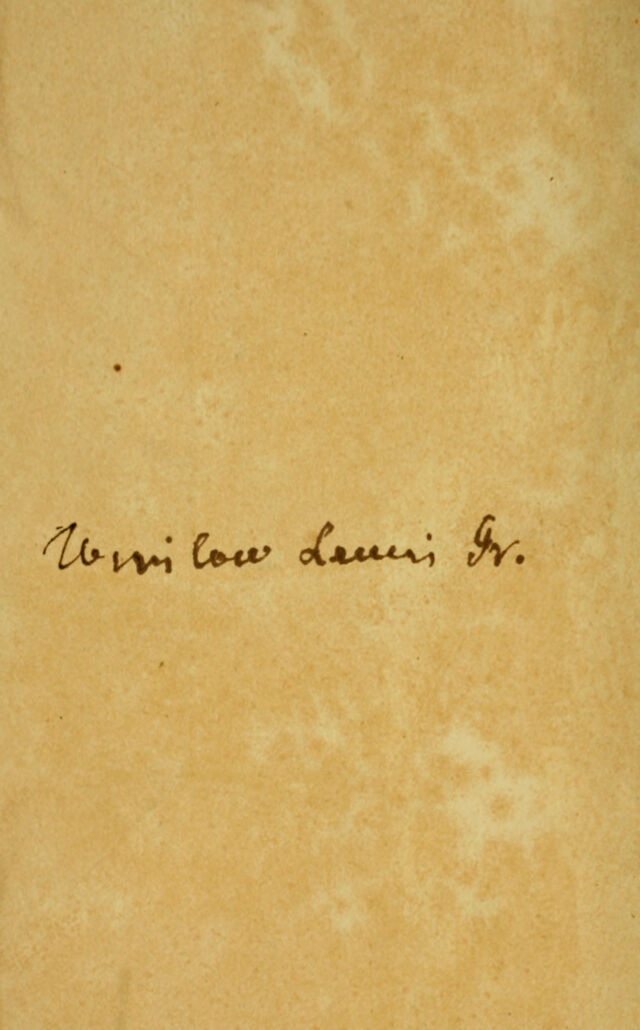 Winslow Lewis Jr.